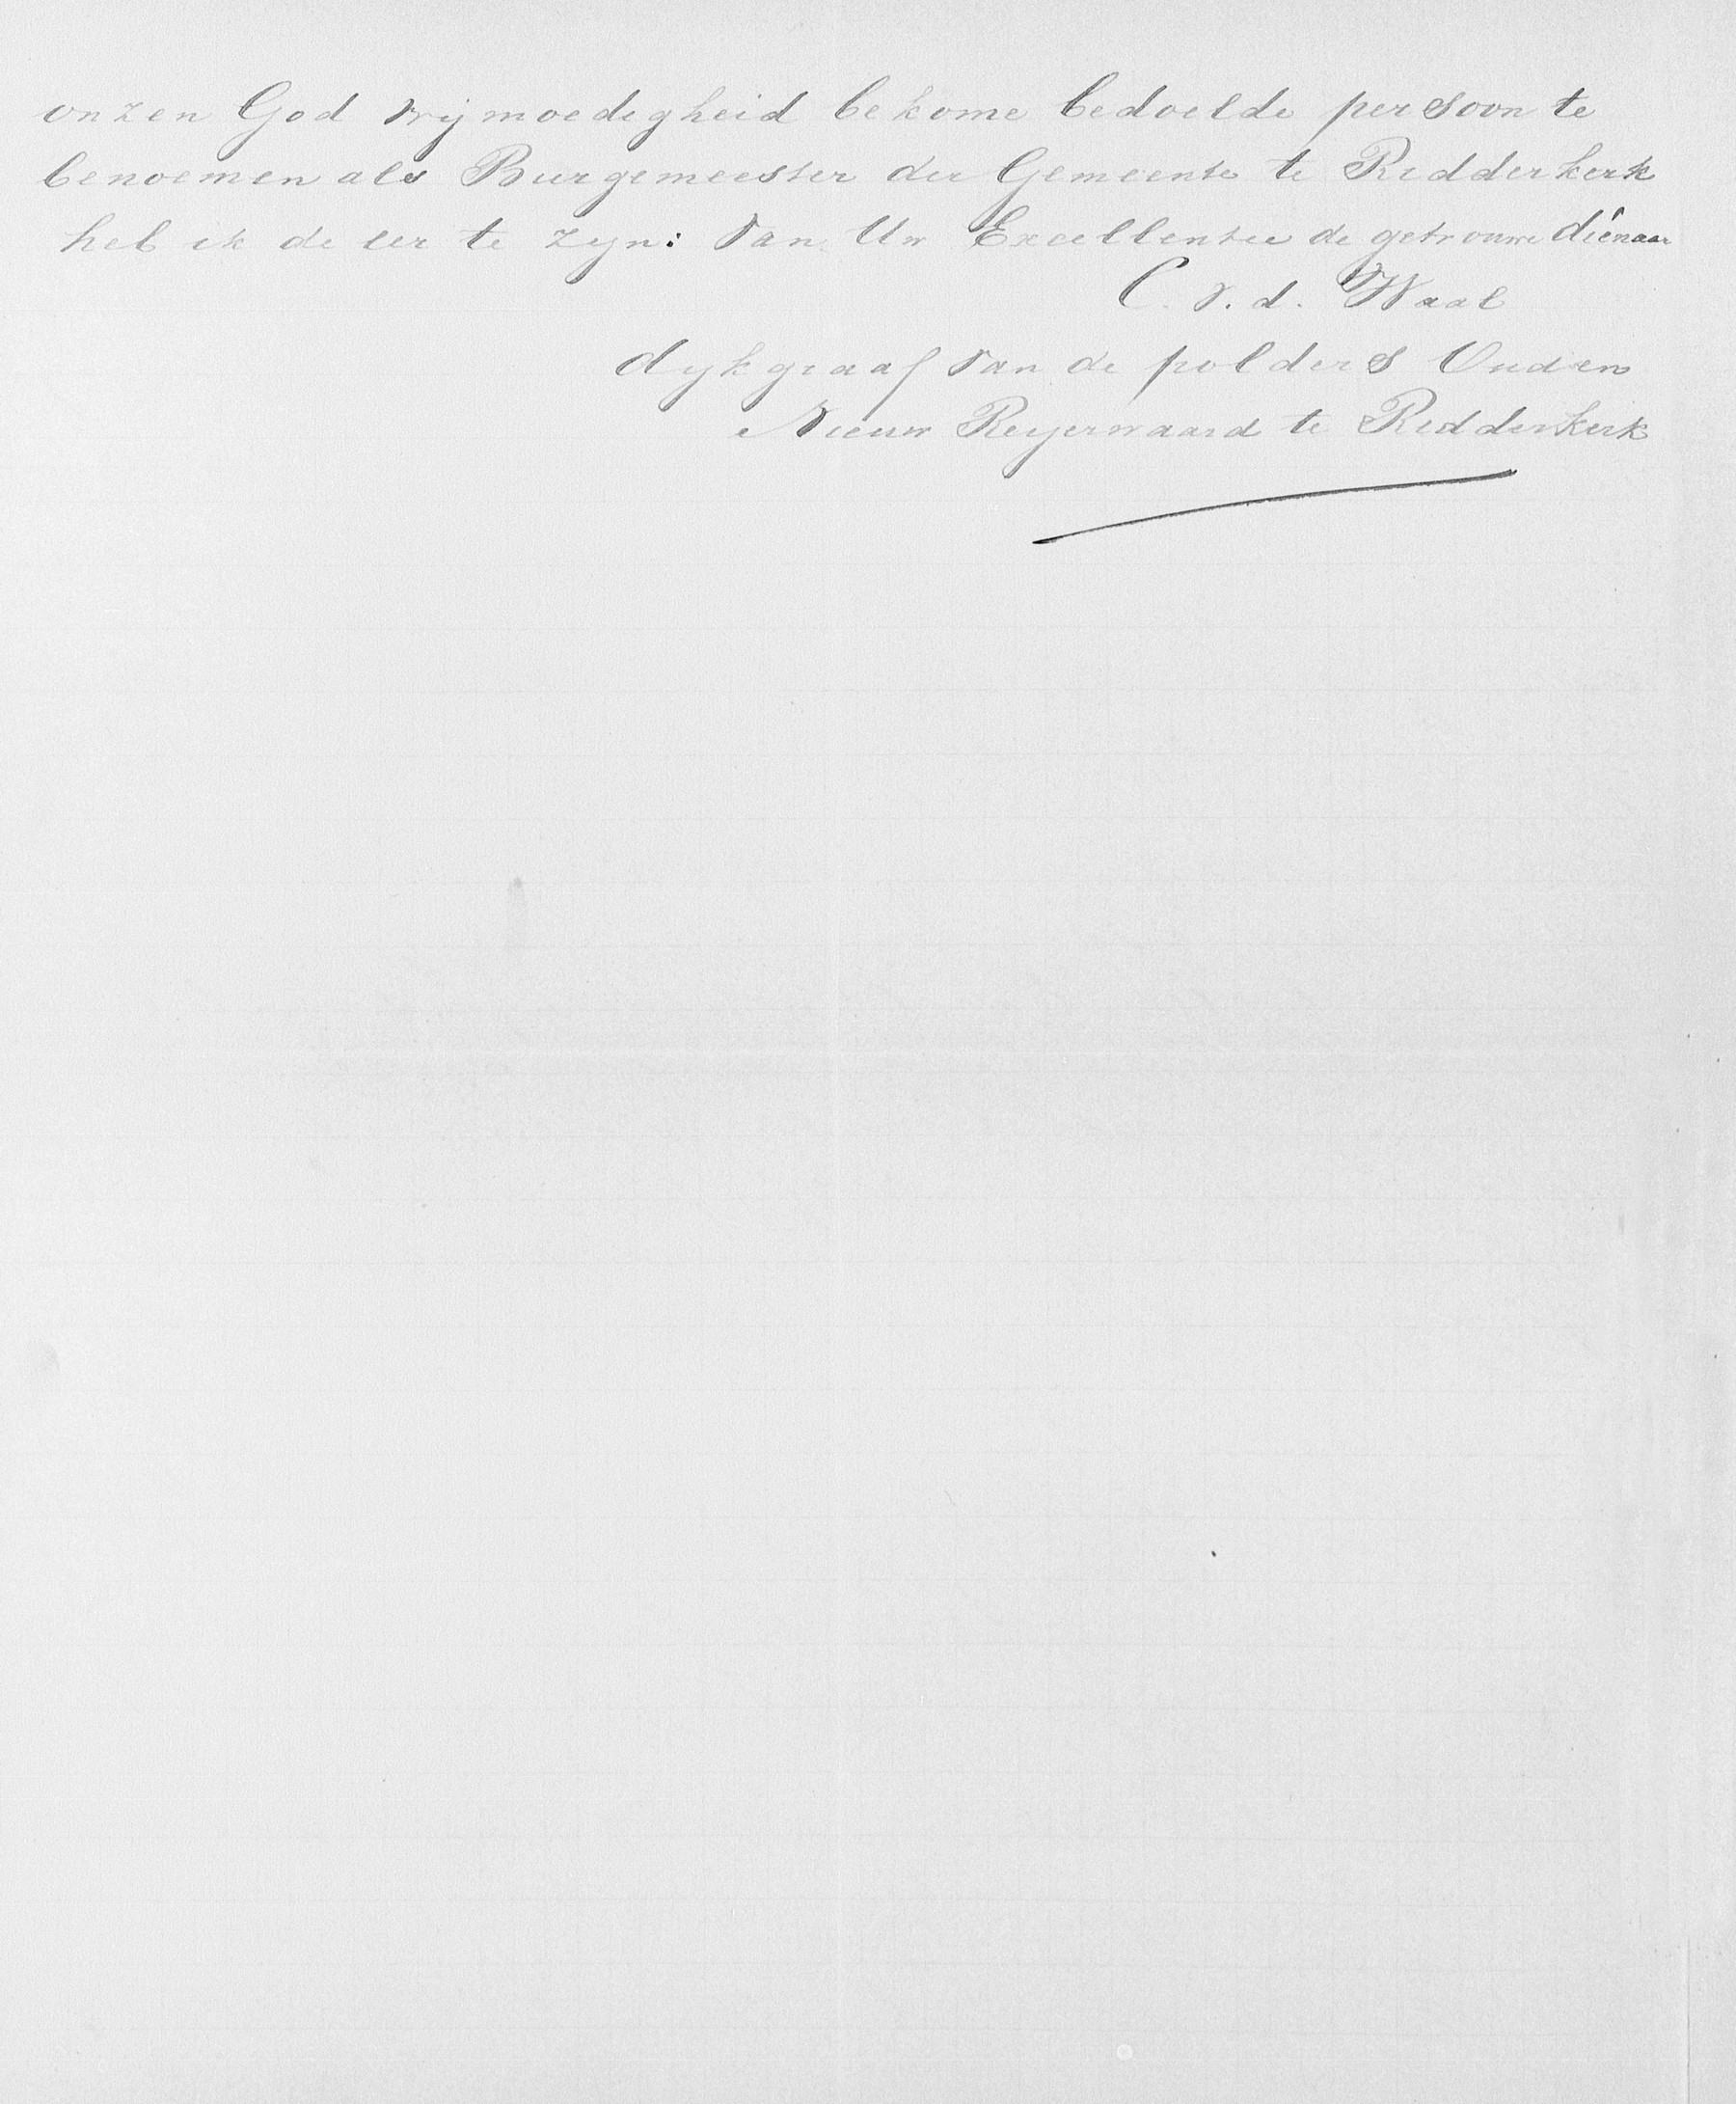 onzen God vrijmoedigheid bekome bedoelde persoon te
benoemen als Burgemeester der Gemeente te Ridderkerk
heb ik de eer te zyn: Van Uw Excellentie de getrouwe dienaar
C. v. d. Waal
dykgraaf van de polders Oud en
Nieuw Reyerwaard te Ridderkerk